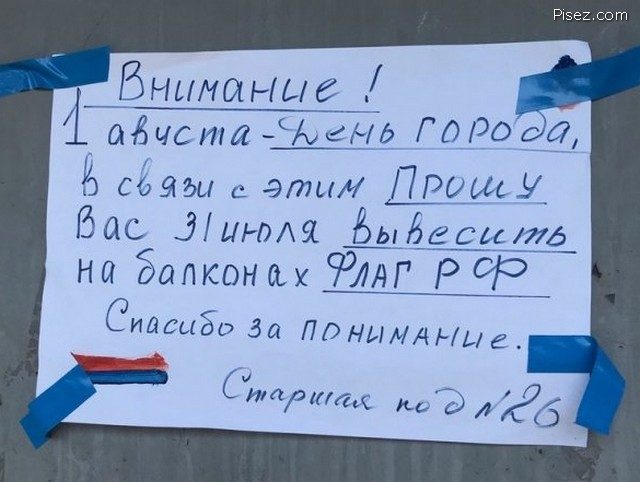 Pisez.com
Внимание!
1 августа - День города,
в связи с этим Прошу
Вас 31 июля вывесить
на балконах Флаг РФ
Спасибо за понимание.
Старшая под №26